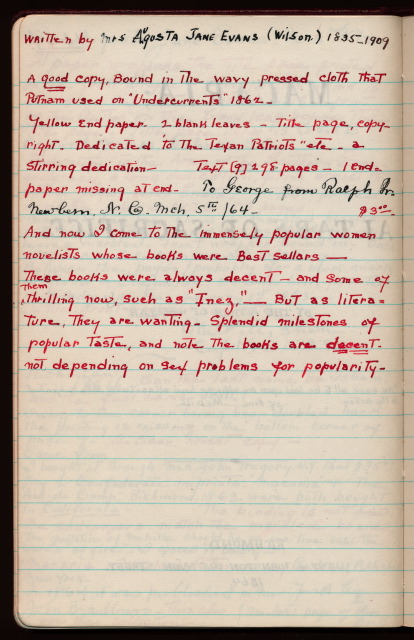 written by Mrs Agusta Jane Evans (Wilson.) 1835-1909
A good copy, Bound in The wavy pressed cloth that
Putnam used on "Undercurrents" 1862-
Yellow End paper 2 blank leaves - Title page, copy-
right. Dedicated to The Texan Patriots "etc - a
stirring dedication- Text [9] 298 pages - 1 end=
paper missing at end- To George from Ralph Jr.
Newbern, N. Co. Mch, 5th /64- $3.00.
And now I come to The immensely popular women
novelists whose books were Best Sellars —
These books were always decent - and some of
them
thrilling now, such as "Inez," — But as litera=
ture, They are wanting - Splendid milestones of
popular Taste, and note The books are decent-
not depending on sex problems for popularity-